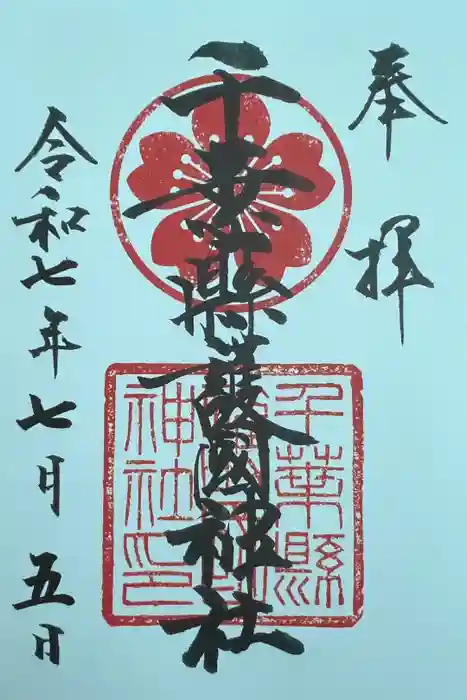 奉拝
千葉縣護國神社
令和七年七月五日
千葉縣
神社印